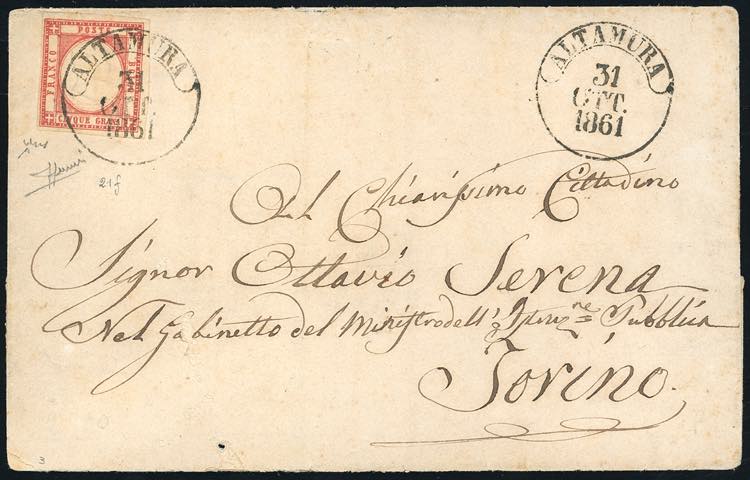 FRANCO
POSTE
BOLLO
CINQUE GRANA
ALTAMURA
31
OTT.
1861
ALTAMURA
31
OTT.
1861
21f
Al Chiarissimo Cittadino
Signor Ottavio Serena
Nel Gabinetto del Ministro dell' Istruzne Pubblica
Torino
3